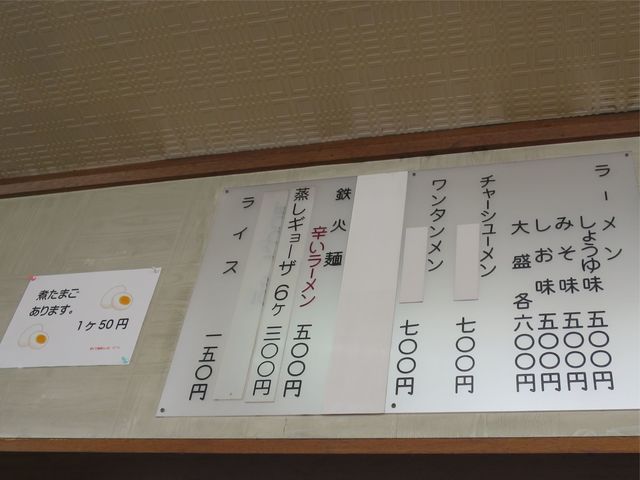 ラーメン
しょうゆ味 五〇〇円
みそ味 五〇〇円
しお味 五〇〇円
大盛 各六〇〇円
チャーシューメン 七〇〇円
ワンタンメン 七〇〇円
鉄火麺
辛いラーメン 五〇〇円
蒸しギョーザ 6ヶ 三〇〇円
ライス 一五〇円
煮たまご
あります。
1ケ50円